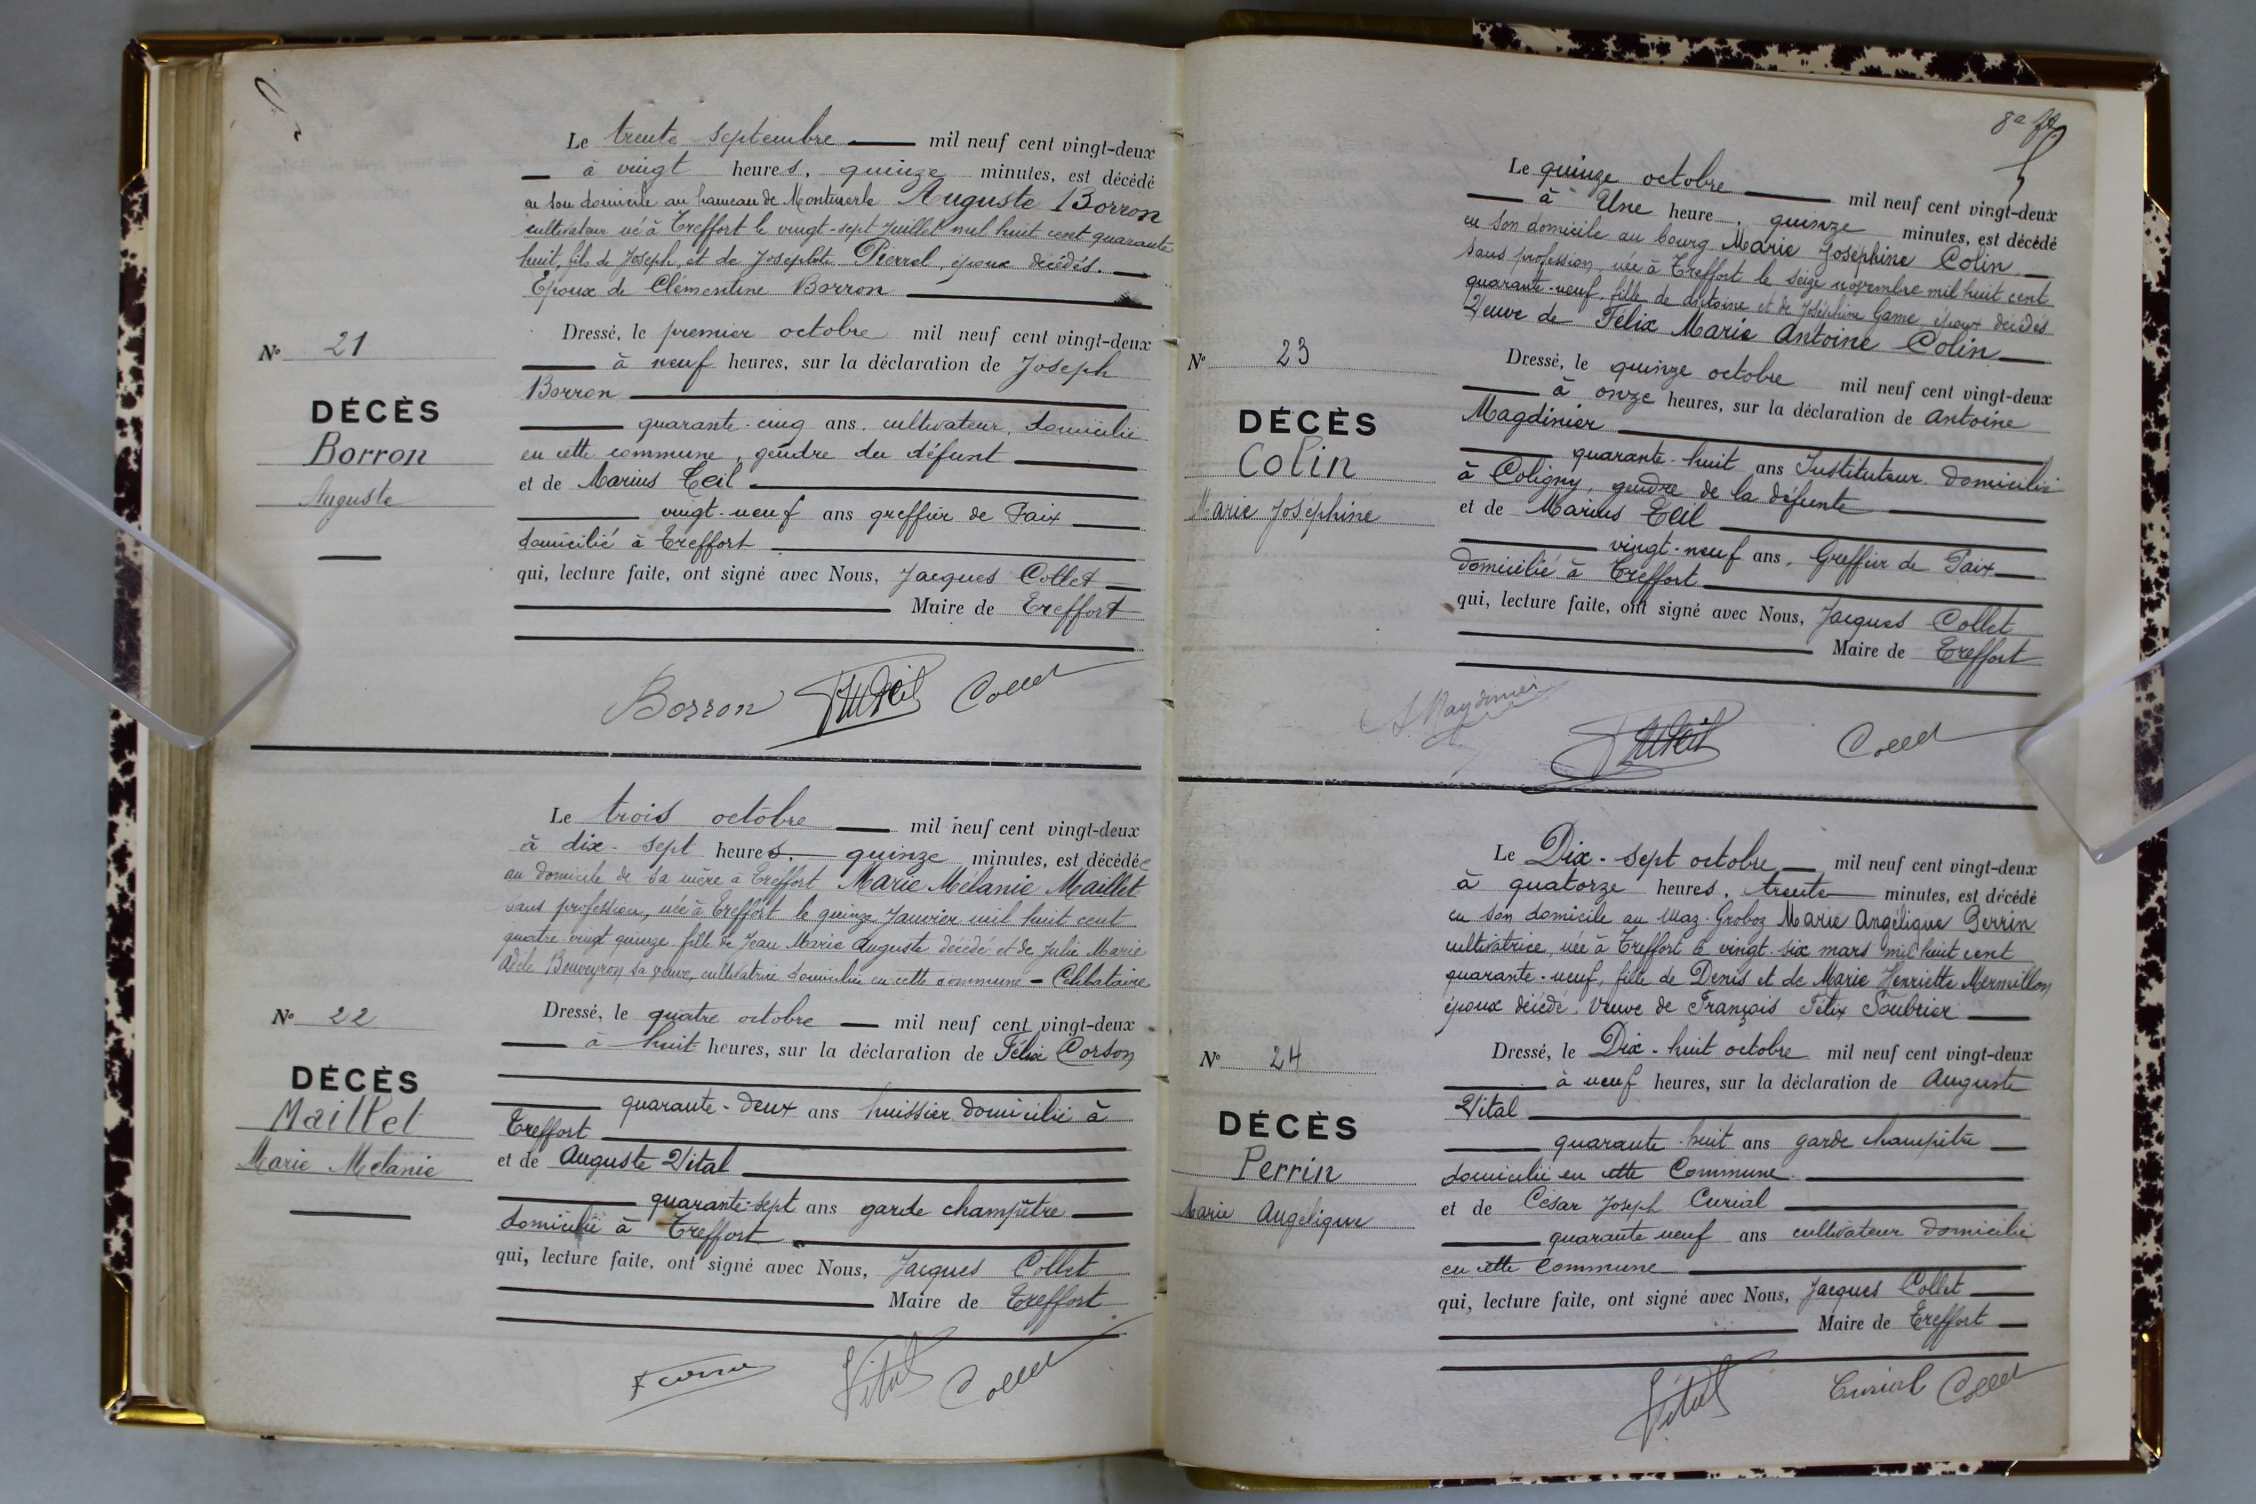 Le trente septembre mil neuf cent vingt-deux
à vingt heures, quinze minutes, est décédé
en son domicile au hameau de Montmerle Auguste Borron
cultivateur né à Treffort le vingt-sept Juillet mil huit cent quarante
huit, fils de Joseph, et de Josephte Pierrel, époux décédés.
Epoux de Clémentine Borron
Nº 21
DÉCÈS
Borron
Auguste
Dressé, le premier octobre mil neuf cent vingt-deux
à neuf heures, sur la déclaration de Joseph
Borron
quarante-cinq ans, cultivateur, domicilié
en cette commune, gendre du défunt
et de Marius Teil
vingt-neuf ans greffier de Paix
domicilié à Treffort
qui, lecture faite, ont signé avec Nous, Jacques Collet
Maire de Treffort
Borron Teil Collet
Le trois octobre mil neuf cent vingt-deux
à dix-sept heures, quinze minutes, est décédée
au domicile de sa mère à Treffort Marie Mélanie Maillet
sans profession, née à Treffort le quinze Janvier mil huit cent
quatre vingt quinze fille de Jean Marie Auguste décédé et de Julie Marie
Adèle Bouveyron sa veuve, cultivatrice domiciliée en cette commune - Célibataire
Nº 22
DÉCÈS
Maillet
Marie Mélanie
Dressé, le quatre octobre mil neuf cent vingt-deux
à huit heures, sur la déclaration de Félix Corson
quarante-deux ans huissier domicilié à
Treffort
et de Auguste Vital
quarante-sept ans garde champêtre
domicilié à Treffort
qui, lecture faite, ont signé avec Nous, Jacques Collet
Maire de Treffort
Vital Collet
8e
Le quinze octobre mil neuf cent vingt-deux
à Une heure, quinze minutes, est décédé
en son domicile au bourg Marie Joséphine Colin
sans profession, née à Treffort le seize novembre mil huit cent
quarante-neuf, fille de Antoine et de Joséphine Game époux décédés
Veuve de Félix Marie Antoine Colin
Nº 23
DÉCÈS
Colin
Marie Joséphine
Dressé, le quinze octobre mil neuf cent vingt-deux
à onze heures, sur la déclaration de Antoine
Magdinier
quarante-huit ans Instituteur domicilié
à Coligny, gendre de la défunte
et de Marius Teil
vingt-neuf ans, Greffier de Paix
domicilié à Treffort
qui, lecture faite, ont signé avec Nous, Jacques Collet
Maire de Treffort
A. Magdinier
Teil Collet
Le Dix-sept octobre mil neuf cent vingt-deux
à quatorze heures, trente minutes, est décédé
en son domicile au Maz-Groboz Marie Angélique Perrin
cultivatrice, née à Treffort le vingt-six mars mil huit cent
quarante-neuf, fille de Denis et de Marie Henriette Mermillon
époux décédé. Veuve de François Félix Soubrier
Nº 24
DÉCÈS
Perrin
Marie Angelique
Dressé, le Dix-huit octobre mil neuf cent vingt-deux
à neuf heures, sur la déclaration de Auguste
Vital
quarante-huit ans garde champêtre
domicilié en cette Commune
et de César Joseph Curial
quarante neuf ans cultivateur domicilié
en cette Commune
qui, lecture faite, ont signé avec Nous, Jacques Collet
Maire de Treffort
Vital Curial Collet